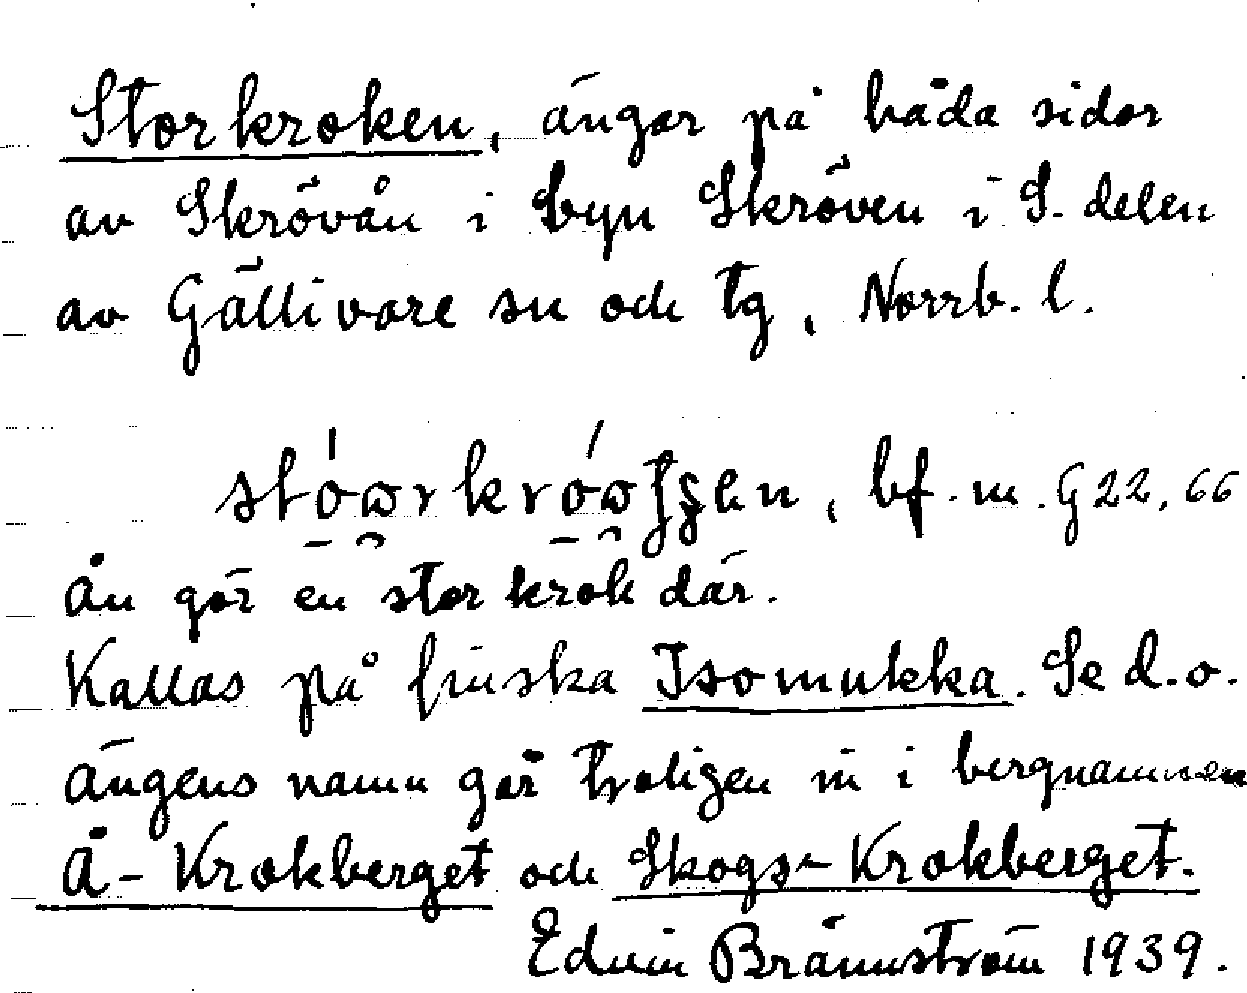 Storkroken, ängar på båda sidor
av Skrövån i byn Skröven i S. delen
av Gällivare sn och tg, Norrb. l.
bf. m. G 22, 66
Ån gör en stor krok där.
Kallas på finska Isomukka. Se d.o.
Ängens namn går troligen in i bergnamnen
Å-Krokberget och Skogs-Krokberget.
Edvin Brännström 1939.